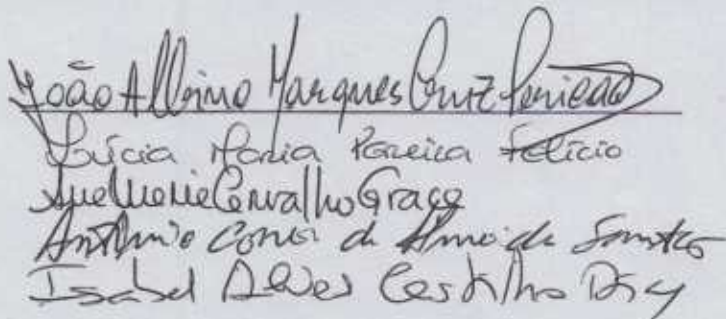 João Albino Marques Cruz
Lúcia Maria Pereira Felício
Ana Maria Carvalho Graça
António de Almeida Santos
Isabel Alves Castilho